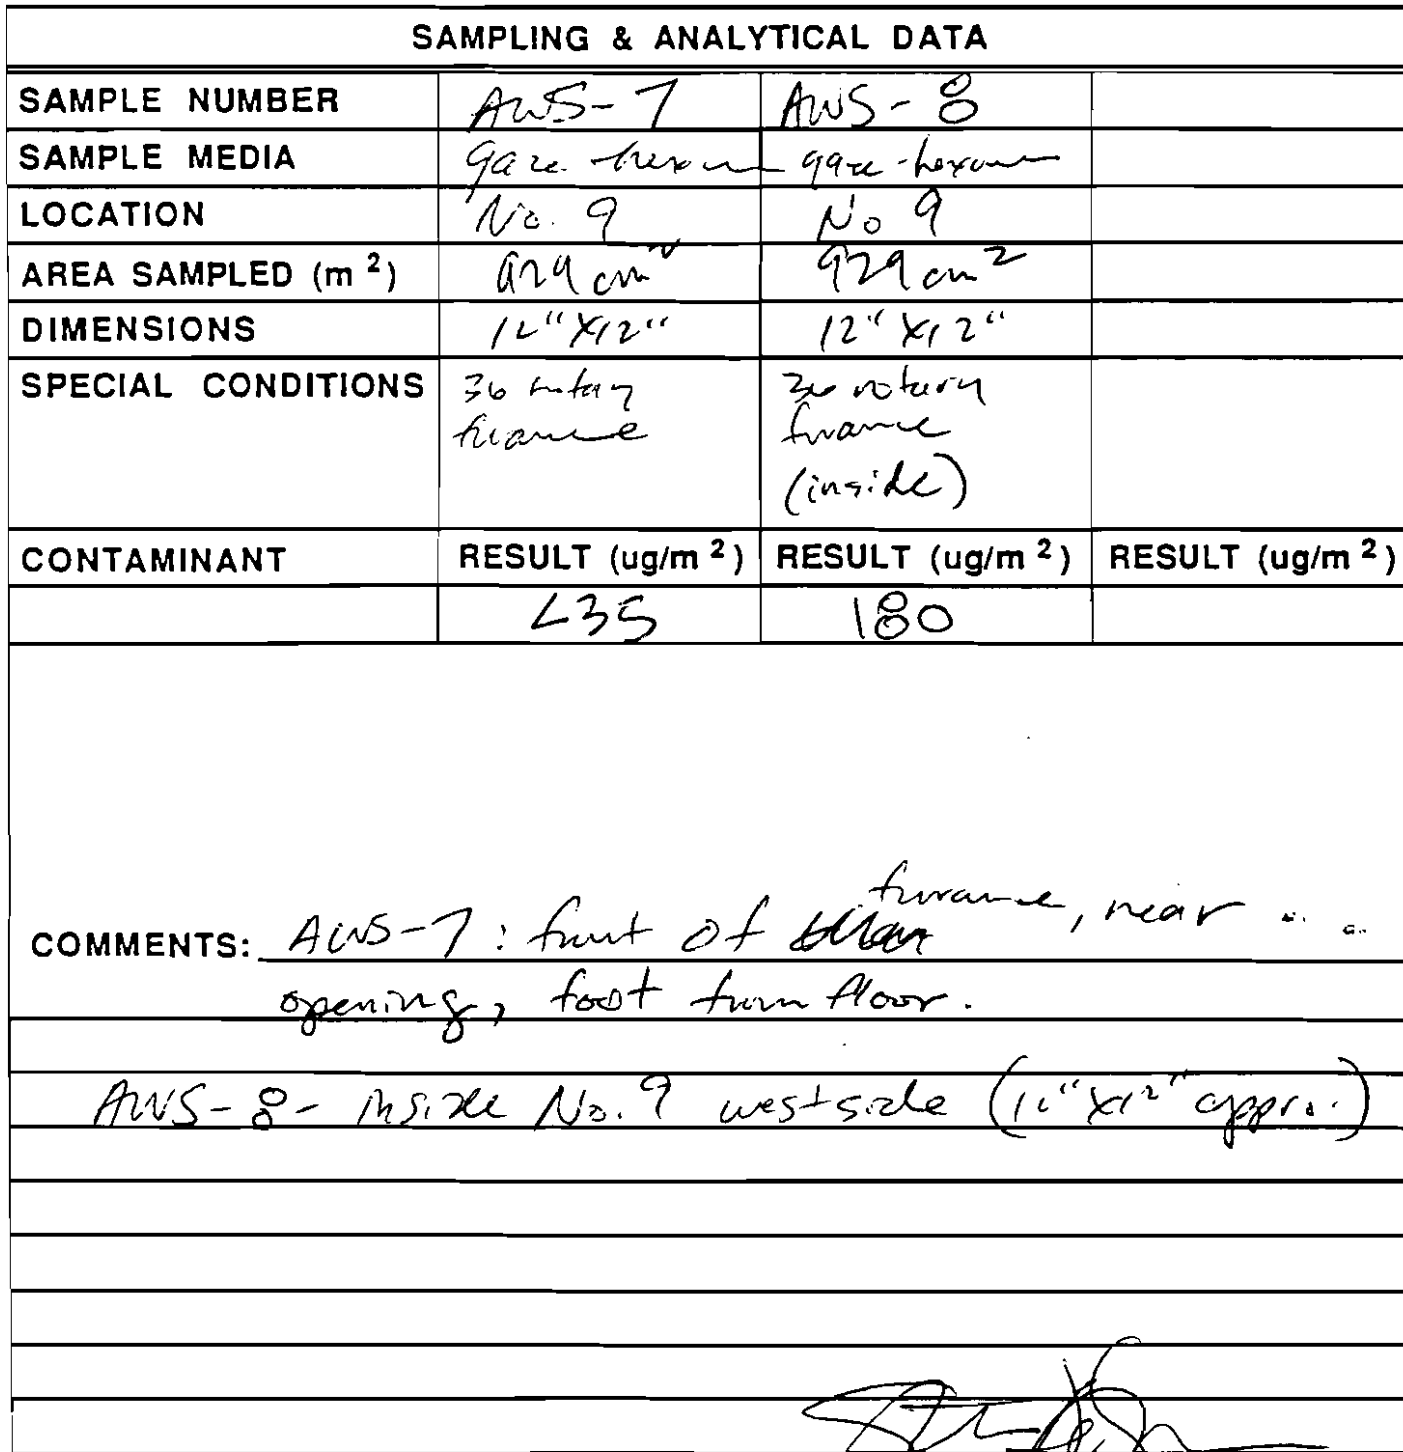 SAMPLING & ANALYTICAL DATA
SAMPLE NUMBER AWS-7 AWS-8
SAMPLE MEDIA gaze-hexane gaze-hexane
LOCATION No. 9 No 9
AREA SAMPLED (m²) 929 cm² 929 cm²
DIMENSIONS 12"X12" 12"X12"
SPECIAL CONDITIONS 36 rotary 36 rotary
furance furance
(inside)
CONTAMINANT RESULT (ug/m²) RESULT (ug/m²) RESULT (ug/m²)
<35 180
COMMENTS: AWS-7: front of furance, near
opening, foot from floor.
AWS-8- inside No. 9 west side (12"X12" appro.)